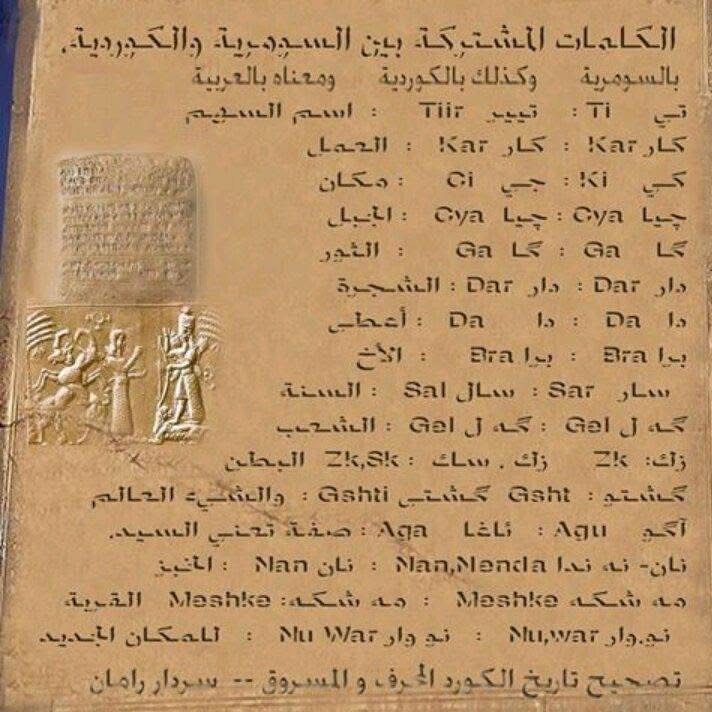 الكلمات المشتركة بين السومرية والكوردية.
بالسومرية وكذلك بالكوردية ومعناه بالعربية
تي Ti : تيير Tiir : اسم السهم
كار Kar : كار Kar : العمل
كي Ki : جي Ci : مكان
چيا Cya : چيا Cya : الجبل
گا Ga : گا Ga : الثور
دار Dar : دار Dar : الشجرة
دا Da : دا Da : أعطى
برا Bra : برا Bra : الأخ
سار Sar : سال Sal : السنة
گه ل Gel : گه ل Gel : الشعب
زك: Zk زك . سك : Zk,Sk البطن
گشتو : Gsht گشتي Gshti : والشيء العالم
آگو Agu : ئاغا Aga : صفة تعني السيد.
نان- نه ندا Nan,Menda : نان Nan : الخبز
مه شكه Meshke : مه شكه: Meshke القربة
نو.وار Nu,war : نو وار Nu War : للمكان الجديد
تصحيح تاريخ الكورد المحرف و المسروق -- سردار رامان